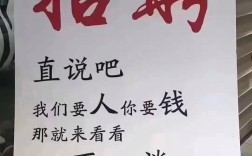 招聘
直说吧
我们要人你要钱
那就来看看